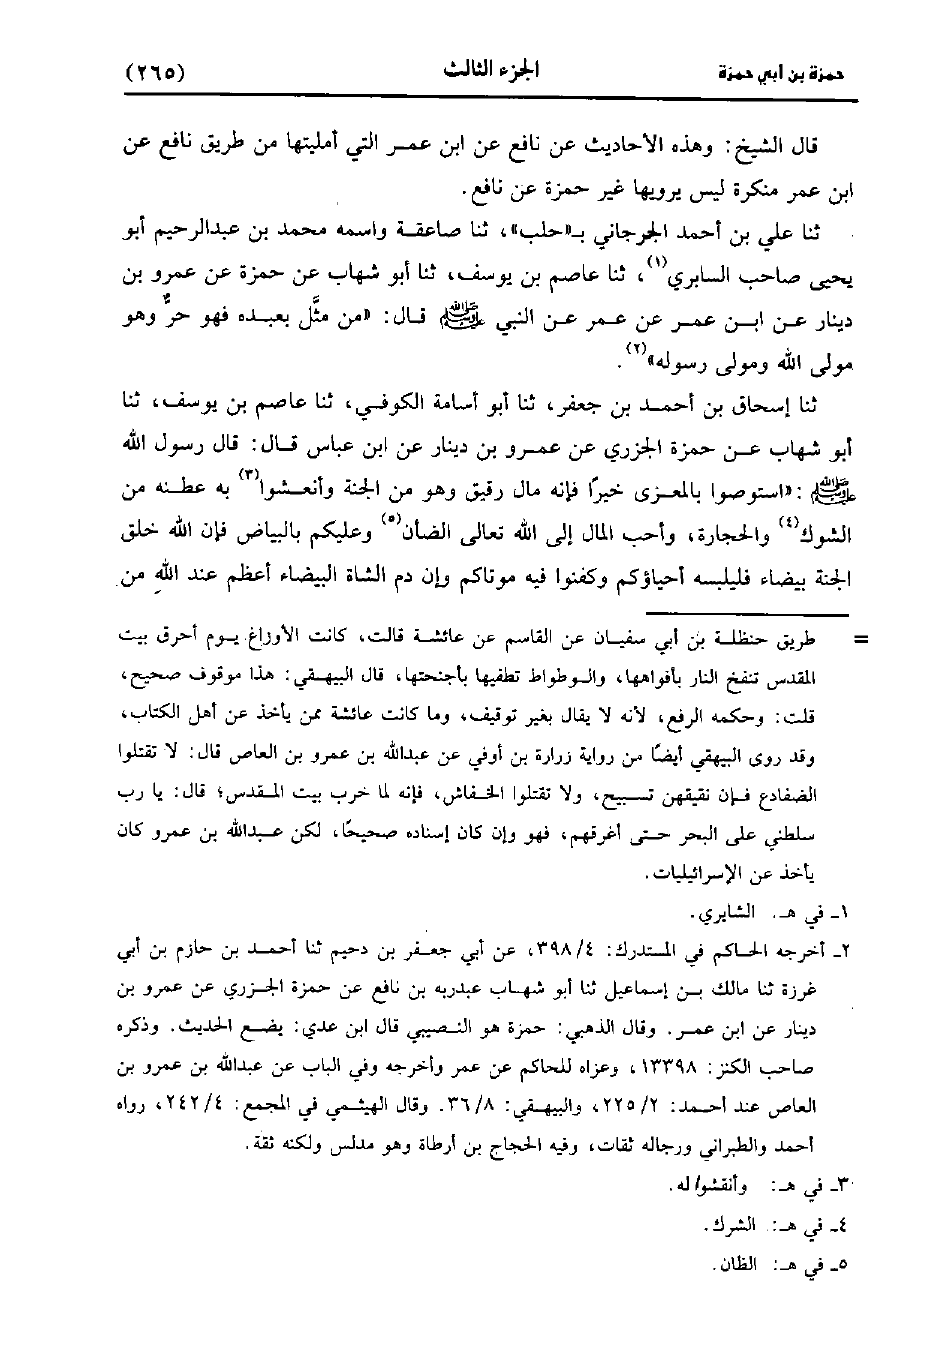 حمزة بن أبي حمزة الجزء الثالث (٢٦٥)
قال الشيخ: وهذه الأحاديث عن نافع عن ابن عمر التي أمليتها من طريق نافع عن
ابن عمر منكرة ليس يرويها غير حمزة عن نافع.
ثنا علي بن أحمد الجرجاني بـ«حلب»، ثنا صاعقة واسمه محمد بن عبدالرحيم أبو
يحيى صاحب السابري(١)، ثنا عاصم بن يوسف، ثنا أبو شهاب عن حمزة عن عمرو بن
دينار عن ابن عمر عن عمر عن النبي ﷺ قال: «من مثَّل بعبده فهو حرٌّ وهو
مولى الله ومولى رسوله»(٢).
ثنا إسحاق بن أحمد بن جعفر، ثنا أبو أسامة الكوفي، ثنا عاصم بن يوسف، ثنا
أبو شهاب عن حمزة الجزري عن عمرو بن دينار عن ابن عباس قال: قال رسول الله
ﷺ: «استوصوا بالمعزى خيرًا فإنه مال رقيق وهو من الجنة وأنعشوا(٣) به عطنه من
الشوك(٤) والحجارة، وأحب المال إلى الله تعالى الضأن(٥) وعليكم بالبياض فإن الله خلق
الجنة بيضاء فليلبسه أحياؤكم وكفنوا فيه موتاكم وإن دم الشاة البيضاء أعظم عند الله من
= طريق حنظلة بن أبي سفيان عن القاسم عن عائشة قالت، كانت الأوزاغ يوم أحرق بيت
المقدس تنفخ النار بأفواهها، والوطواط تطفيها بأجنحتها، قال البيهقي: هذا موقوف صحيح،
قلت: وحكمه الرفع، لأنه لا يقال بغير توقيف، وما كانت عائشة ممن يأخذ عن أهل الكتاب،
وقد روى البيهقي أيضًا من رواية زرارة بن أوفي عن عبدالله بن عمرو بن العاص قال: لا تقتلوا
الضفادع فإن نقيقهن تسبيح، ولا تقتلوا الخفاش، فإنه لما خرب بيت المقدس؛ قال: يا رب
سلطني على البحر حتى أغرقهم، فهو وإن كان إسناده صحيحًا، لكن عبدالله بن عمرو كان
يأخذ عن الإسرائيليات.
١ـ في هـ. الشابري.
٢ـ أخرجه الحاكم في المستدرك: ٣٩٨/٤، عن أبي جعفر بن دحيم ثنا أحمد بن حازم بن أبي
غرزة ثنا مالك بن إسماعيل ثنا أبو شهاب عبدربه بن نافع عن حمزة الجزري عن عمرو بن
دينار عن ابن عمر. وقال الذهبي: حمزة هو النصيبي قال ابن عدي: يضع الحديث. وذكره
صاحب الكنز: ١٣٣٩٨، وعزاه للحاكم عن عمر وأخرجه وفي الباب عن عبدالله بن عمرو بن
العاص عند أحمد: ٢٢٥/٢، والبيهقي: ٣٦/٨. وقال الهيثمي في المجمع: ٢٤٢/٤، رواه
أحمد والطبراني ورجاله ثقات، وفيه الحجاج بن أرطاة وهو مدلس ولكنه ثقة.
٣ـ في هـ: وأنقشوا/له.
٤ـ في هـ: الشرك.
٥ـ في هـ: الظان.